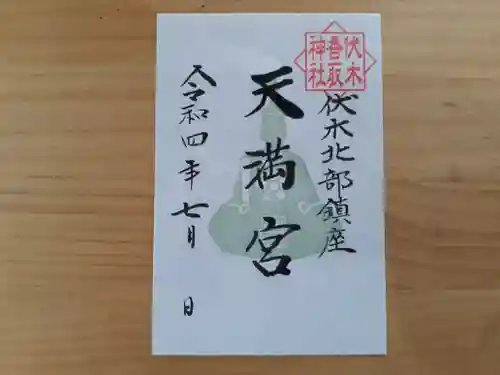 伏木香取神社
伏木北部鎮座
天満宮
令和四年七月 日